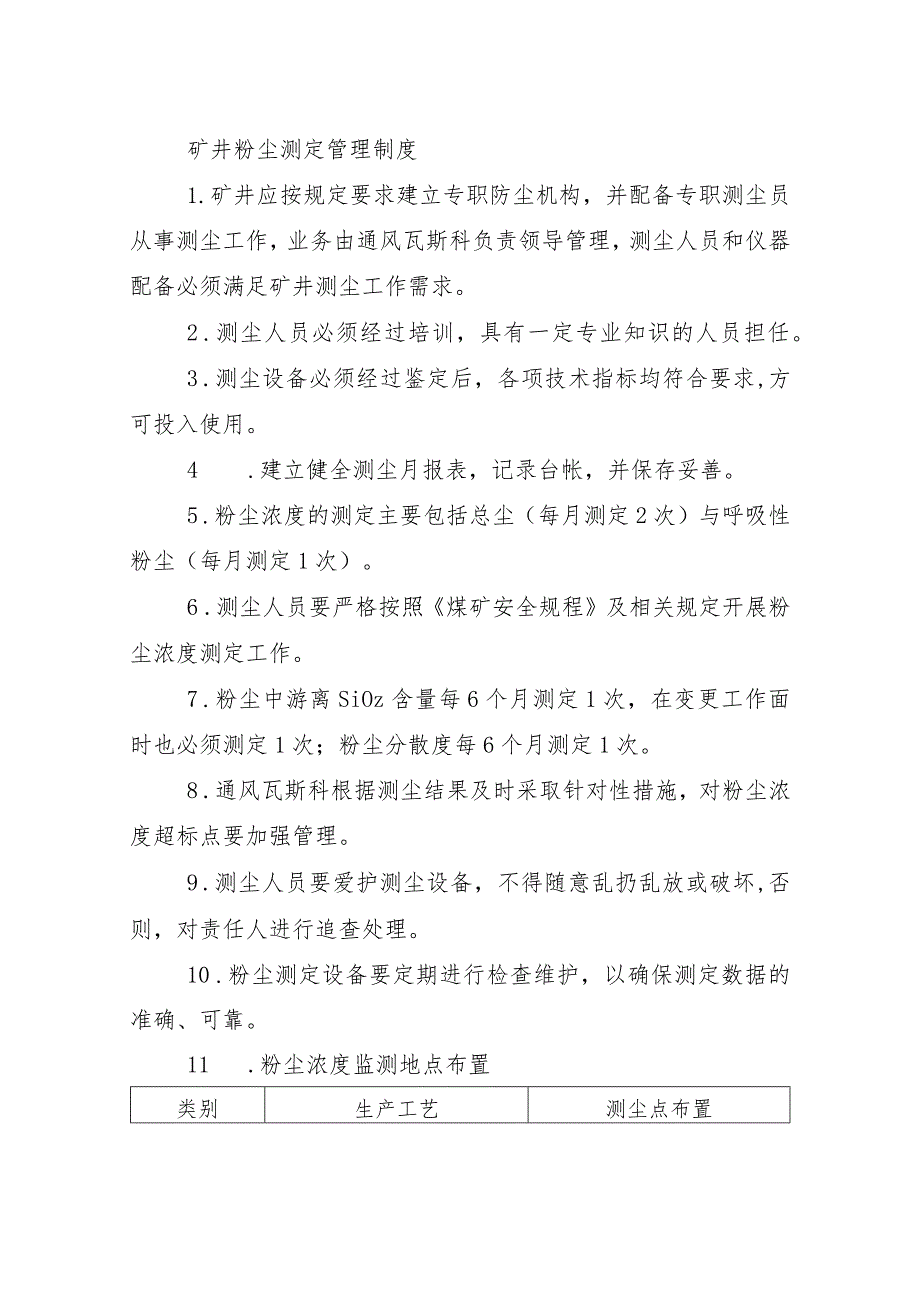 矿井粉尘测定管理制度
1.矿井应按规定要求建立专职防尘机构，并配备专职测尘员
从事测尘工作,业务由通风瓦斯科负责领导管理,测尘人员和仪器
配备必须满足矿井测尘工作需求。
2.测尘人员必须经过培训，具有一定专业知识的人员担任。
3.测尘设备必须经过鉴定后，各项技术指标均符合要求,方
可投入使用。
4 .建立健全测尘月报表，记录台帐，并保存妥善。
5.粉尘浓度的测定主要包括总尘（每月测定2次）与呼吸性
粉尘（每月测定1次）。
6.测尘人员要严格按照《煤矿安全规程》及相关规定开展粉
尘浓度测定工作。
7.粉尘中游离SiOz含量每6个月测定1次，在变更工作面
时也必须测定1次；粉尘分散度每6个月测定1次。
8.通风瓦斯科根据测尘结果及时采取针对性措施，对粉尘浓
度超标点要加强管理。
9.测尘人员要爱护测尘设备，不得随意乱扔乱放或破坏,否
则，对责任人进行追查处理。
10.粉尘测定设备要定期进行检查维护，以确保测定数据的
准确、可靠。
11 .粉尘浓度监测地点布置
类别 生产工艺 测尘点布置